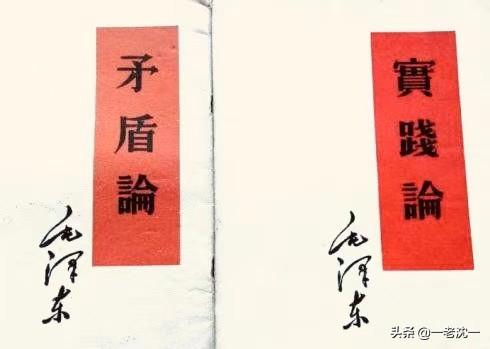 矛盾論
毛泽东
實踐論
毛泽东
头条 @一老沈一